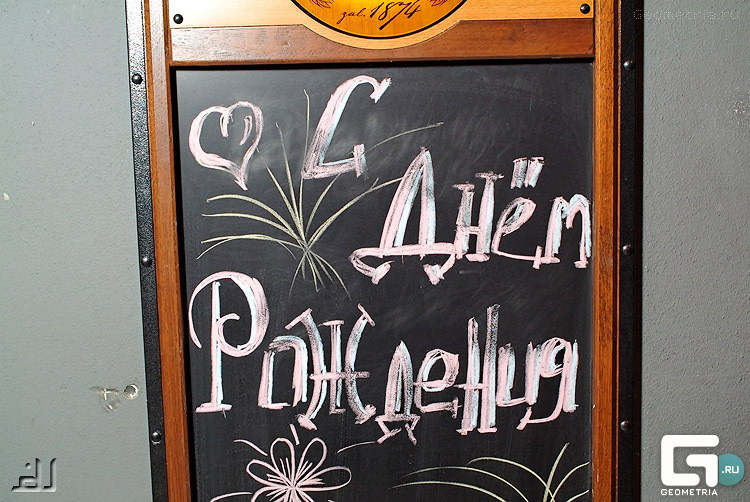 zał. 1874
Geometria.ru
С Днём
Рождения
G.RU
GEOMETRIA